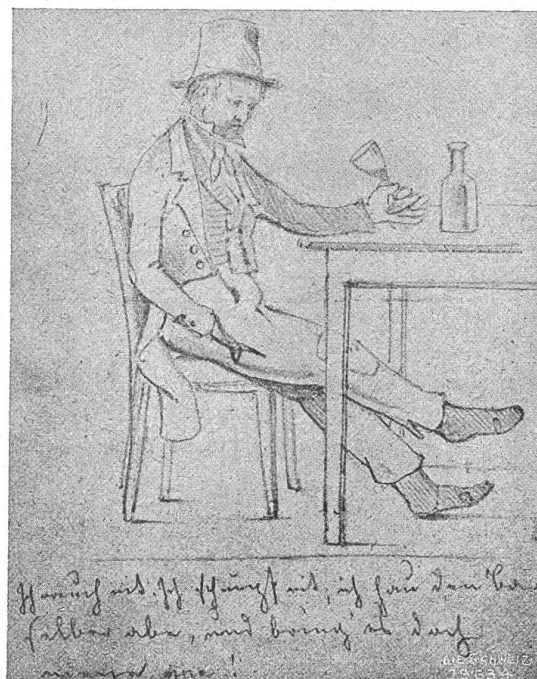 Ich rauch nit, Ich schnupf nit, ich hau den Ba
selber abe, und bring es doch
DIE SCHWEIZ
19634